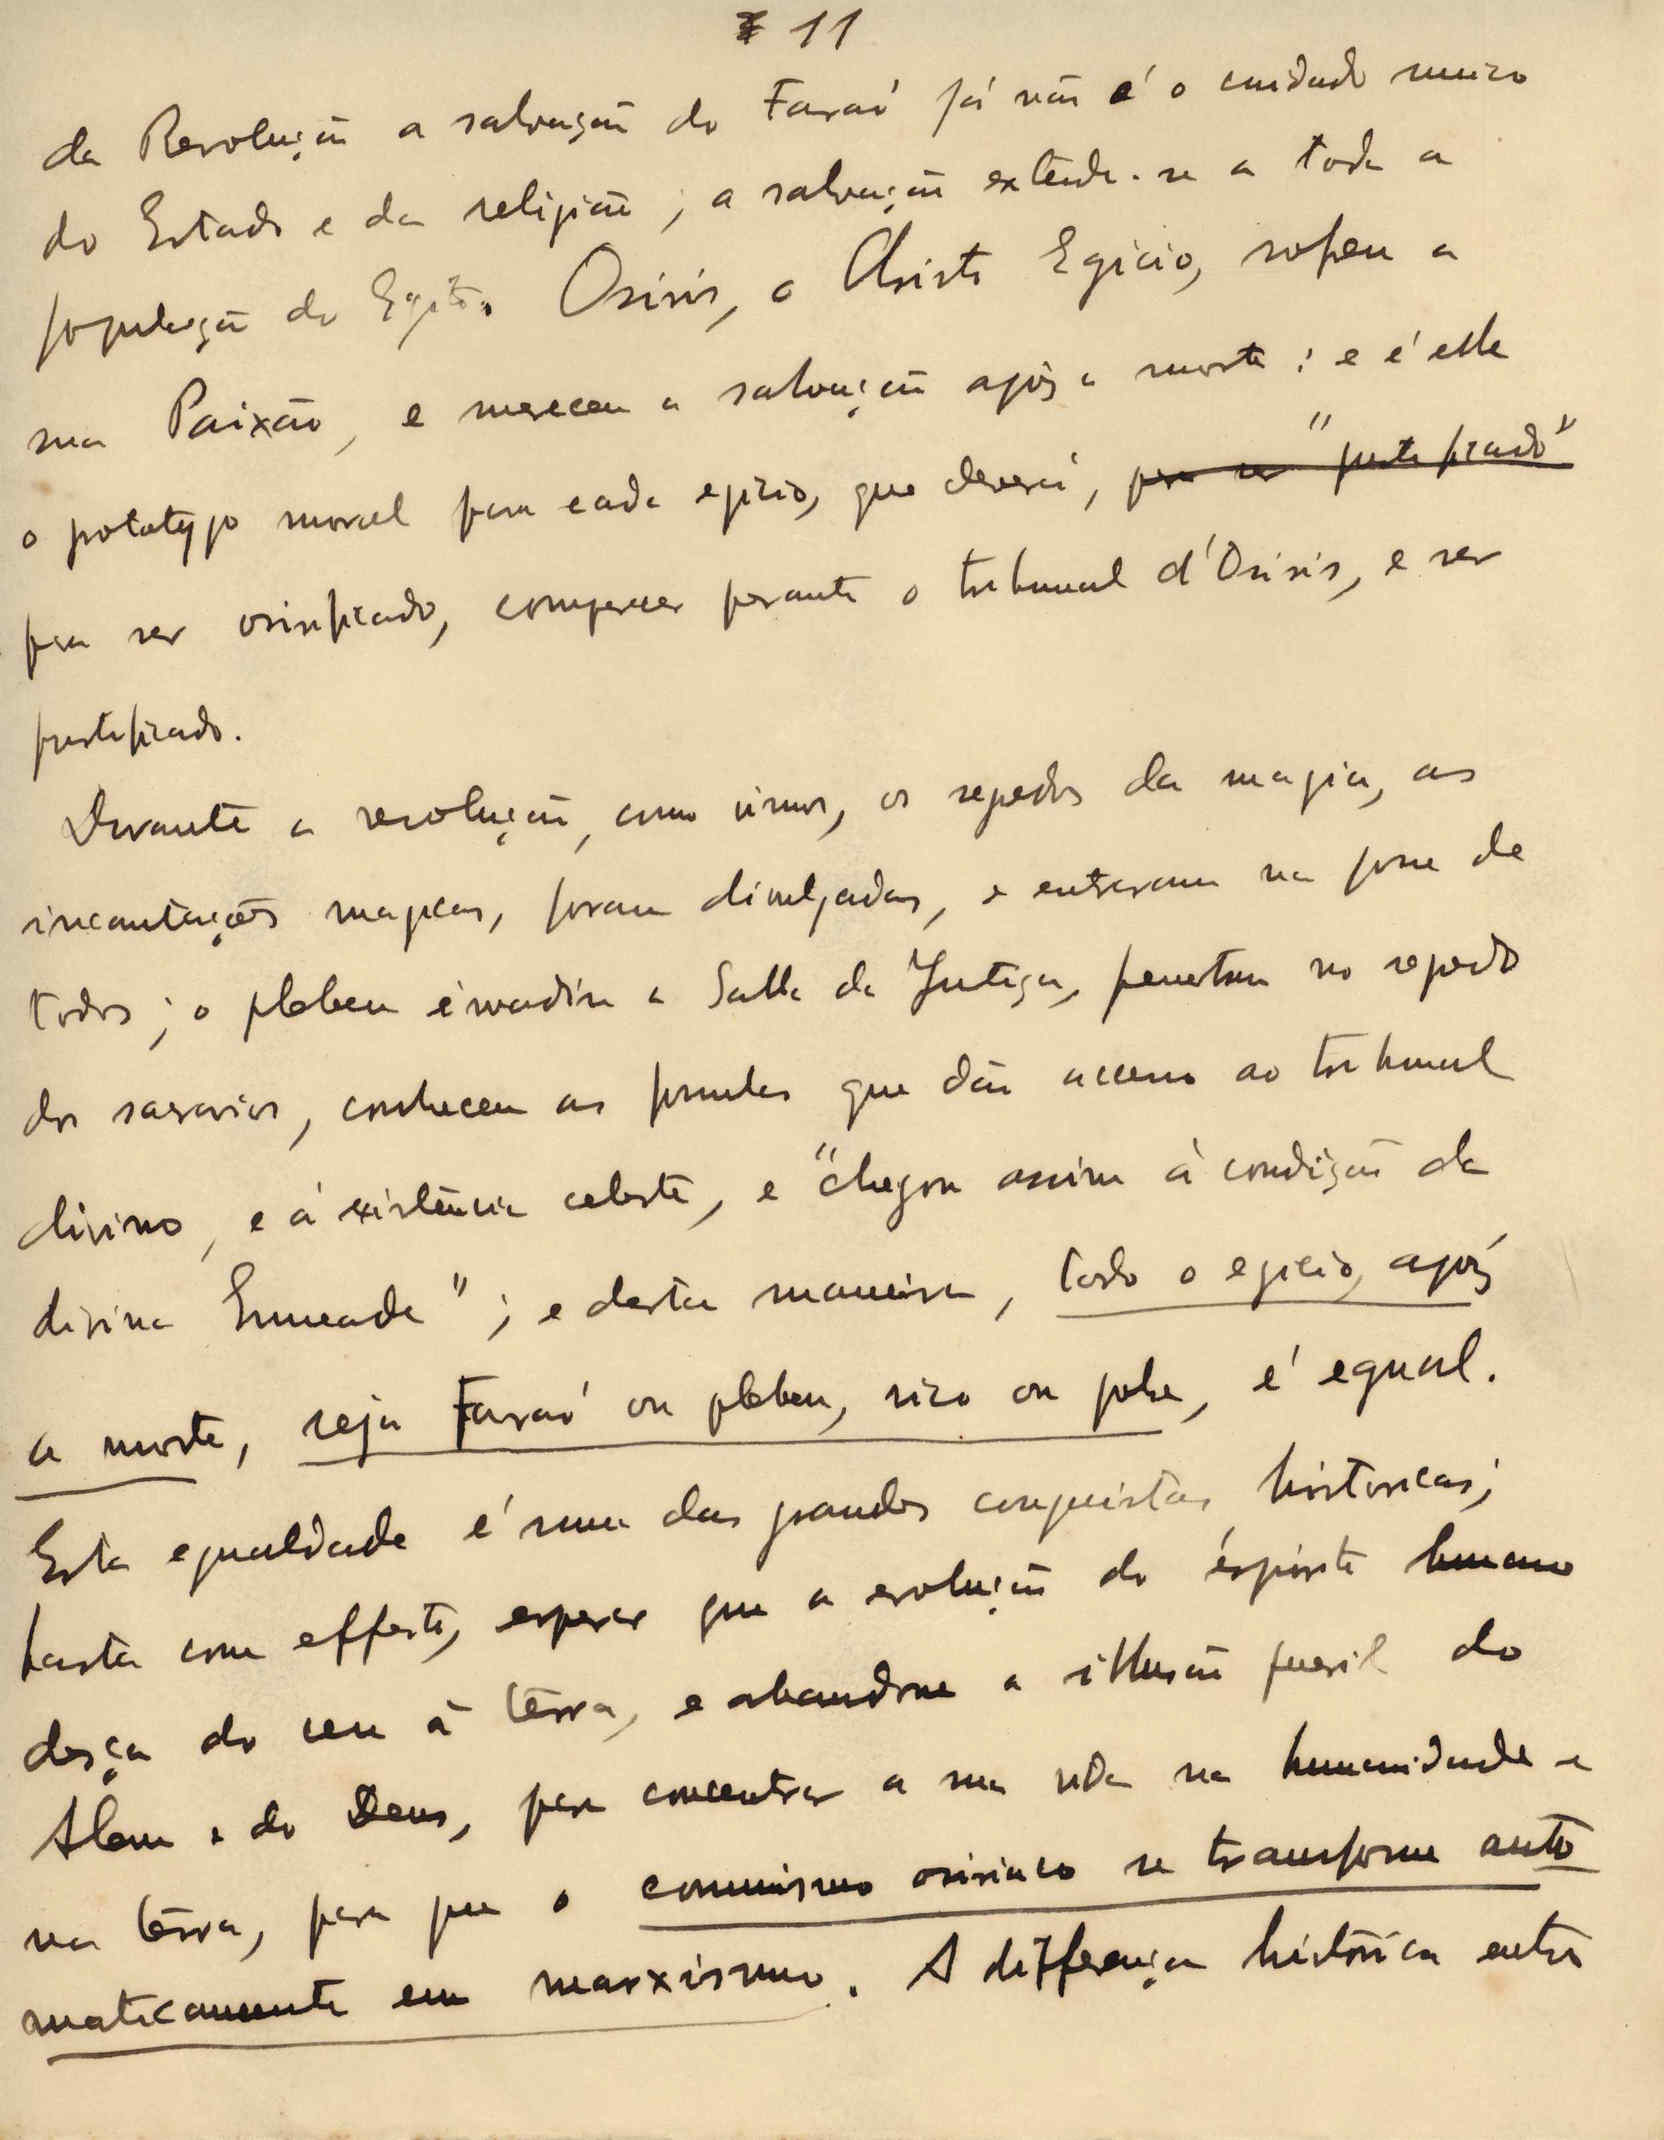 11
da Revolução a salvação do Faraó já não é o cuidado unico
do Estado e da religião; a salvação extende-se a toda a
população do Egito. Osiris, o Christo Egicio, sofreu a
sua Paixão, e mereceu a salvação após a morte; e é elle
o prototypo moral para cada egicio, que deverá, para ser "justificado"
para ser osirificado, comparecer perante o tribunal d'Osiris, e ser
justificado.
Durante a revolução, como vimos, os segredos da magia, as
incantações magicas, foram divulgadas, e entraram na posse de
todos; o plebeu invadiu a Salla da Justiça, penetrou no segredo
dos sacrarios, conheceu as formulas que dão accesso ao tribunal
divino, e á existência celeste, e "chegou assim á condição da
divina Enneade"; e desta maneira, todo o egicio, após
a morte, seja Faraó ou plebeu, rico ou pobre, é egual.
Esta egualdade é uma das grandes conquistas historicas;
basta com effeito, esperar que a evolução do espirito humano
desça do ceu á terra, e abandone a illusão pueril do
Alem e do Deus, para concentrar a sua vida na humanidade e
na terra, para que o comunismo osiriaco se transforme auto
maticamente em marxismo. A differença histórica entre